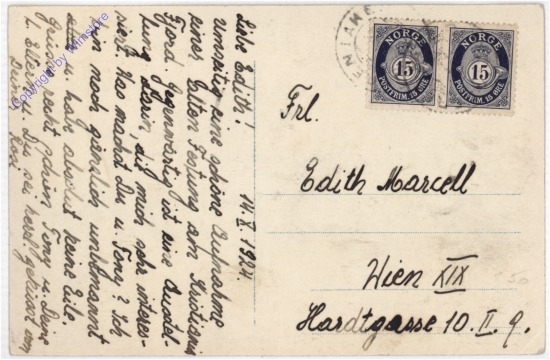 14. X. 1924.
Liebe Edith!
umseitig eine schöne Aufnahme
einer alten Festung am Kristiania
Fjord. Gegenwärtig ist eine Ausstel-
lung darin, die mich sehr interes-
siert. Was machst Du u. Tony? Ich
bin noch gänzlich unbemannt
u. habe absolut keine Eile.
Grüsse recht schön Tony u. Deine
l. Eltern u. Du sei herzl. geküsst von
Deiner
NORGE
15
POSTFRIM. 15 ØRE
NORGE
15
POSTFRIM. 15 ØRE
Frl.
Edith Marcell
Wien XIX
Hardtgasse 10. II. 9.
50
copyright by Winistore